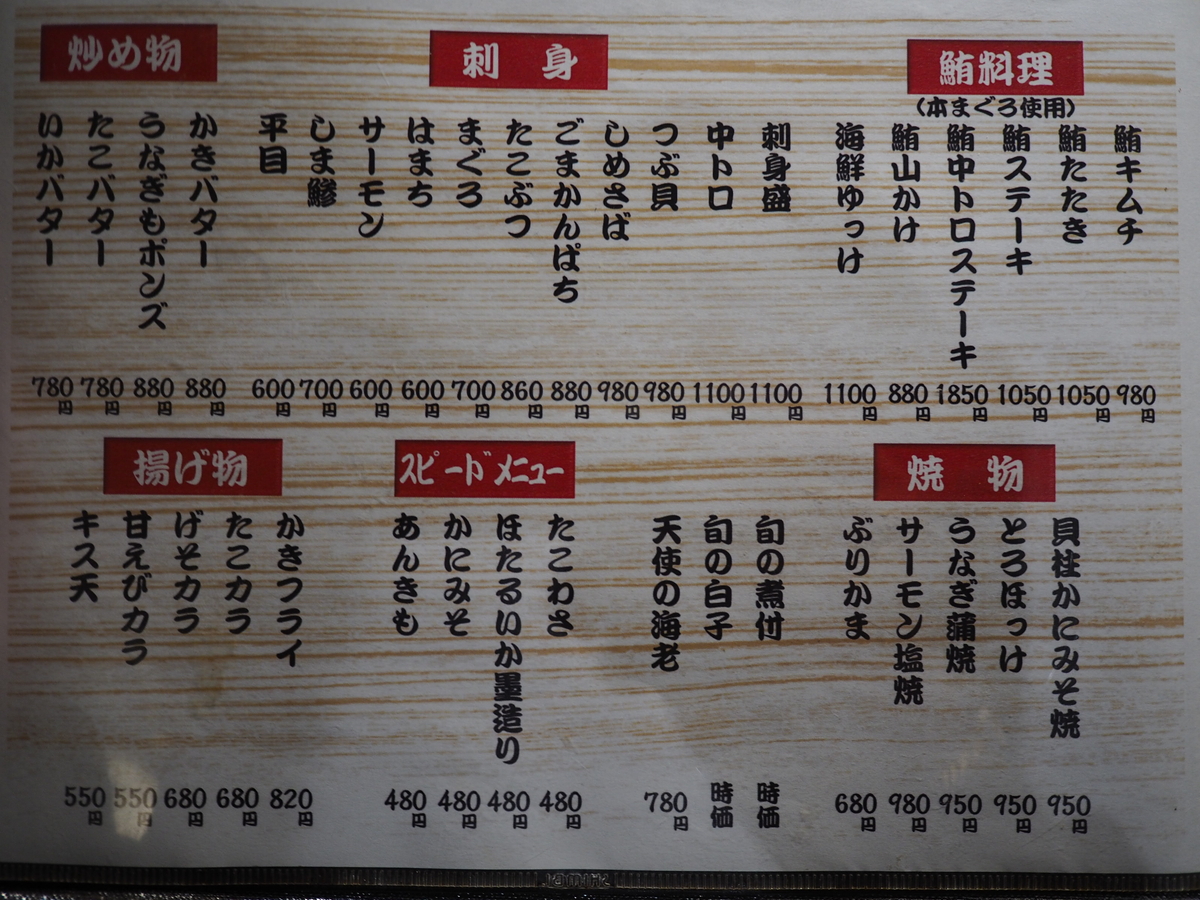 鮪料理
(本まぐろ使用)
鮪キムチ 980円
鮪たたき 1050円
鮪ステーキ 1050円
鮪中トロステーキ 1850円
鮪山かけ 880円
海鮮ゆっけ 1100円
刺身
刺身盛 1100円
中トロ 1100円
つぶ貝 980円
しめさば 980円
ごまかんぱち 880円
たこぶつ 860円
まぐろ 700円
はまち 600円
サーモン 600円
しま鯵 700円
平目 600円
炒め物
かきバター 880円
うなぎもポンズ 880円
たこバター 780円
いかバター 780円
焼物
貝柱かにみそ焼 950円
とろほっけ 950円
うなぎ蒲焼 950円
サーモン塩焼 980円
ぶりかま 680円
旬の煮付 時価
旬の白子 時価
天使の海老 780円
スピードメニュー
たこわさ 480円
ほたるいか墨造り 480円
かにみそ 480円
あんきも 480円
揚げ物
かきフライ 820円
たこカラ 680円
げそカラ 680円
甘えびカラ 550円
キス天 550円